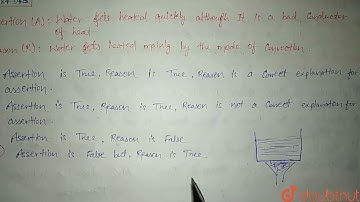 ertion (A): Water gets heated quickly although It is a bad Conductor
of heat
ason (R): Water gets heated mainly by the mode of Convection
Assertion is True, Reason is True, Reason is a Correct explanation for
assertion.
Assertion is True, Reason is True, Reason is not a Correct explanation for
assertion.
Assertion is True, Reason is False
Assertion is False but, Reason is True.
doubtnut